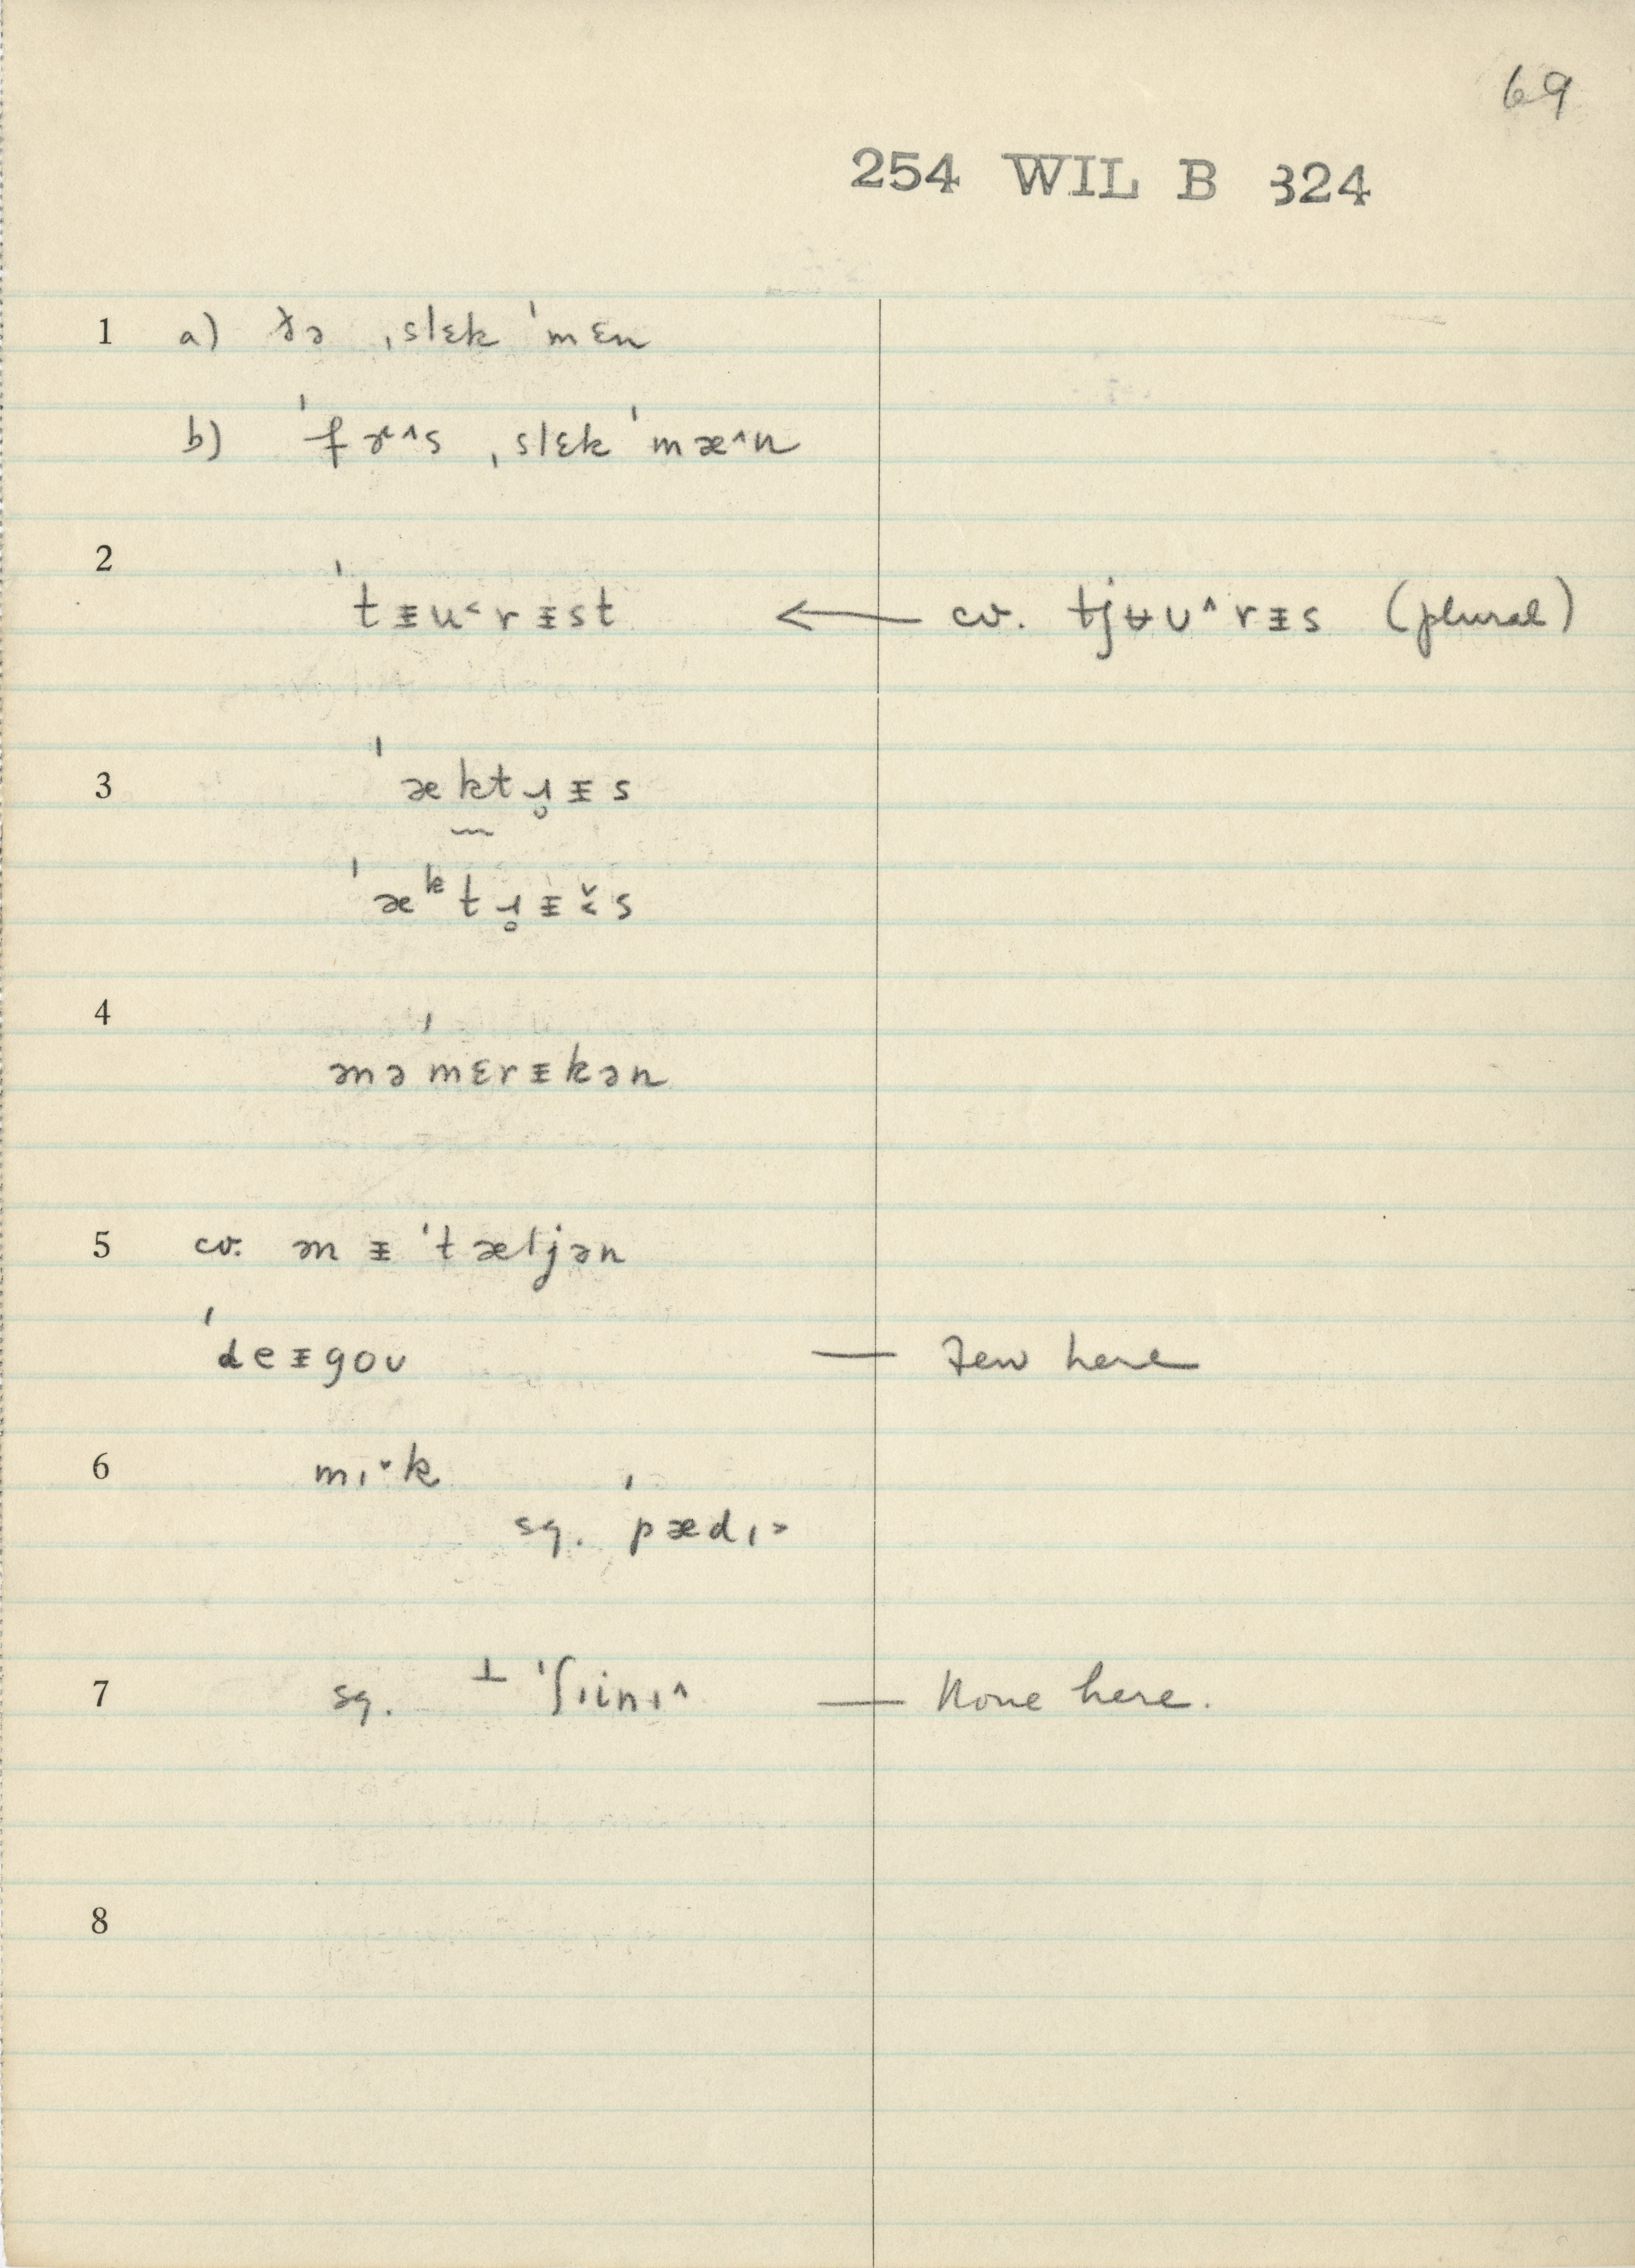 69
254 WIL B 324
1 a) ðə ˌslɛk ˈmɛn
b) ˈfɚ^s ˌslɛk ˈmæ^n
2
ˈtɪ̵u˂rɪ̵st ← cv. tjʉʊ^rɪ̵s (plural)
3 ˈæktɹ̥ɪ̵s
ˈæᵏtɹ̥ɪ̵˂̌s
4
ənəˈmɛrɪ̵kən
5 cv. ənɪ̵ˈtæljən
ˈdeɪ̵goʊ — Few here
6 mɪ˅k
sg. ˈpædɪ˃
7 sg. ⊥ ˈʃɪinɪ^ — None here.
8